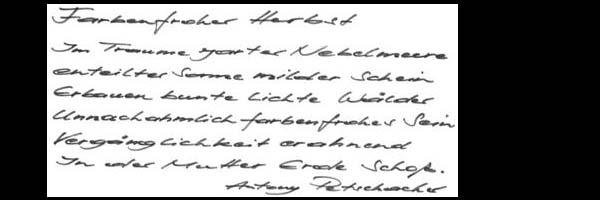 Farbenfroher Herbst
Im Traume zarter Nebelmeere
enteilter Sonne milder Schein
Erbauen bunte lichte Wälder
Unnachahmlich farbenfrohes Sein
Vergänglichkeit erahnend
In der Mutter Erde Schoß.
Antony Petschacher